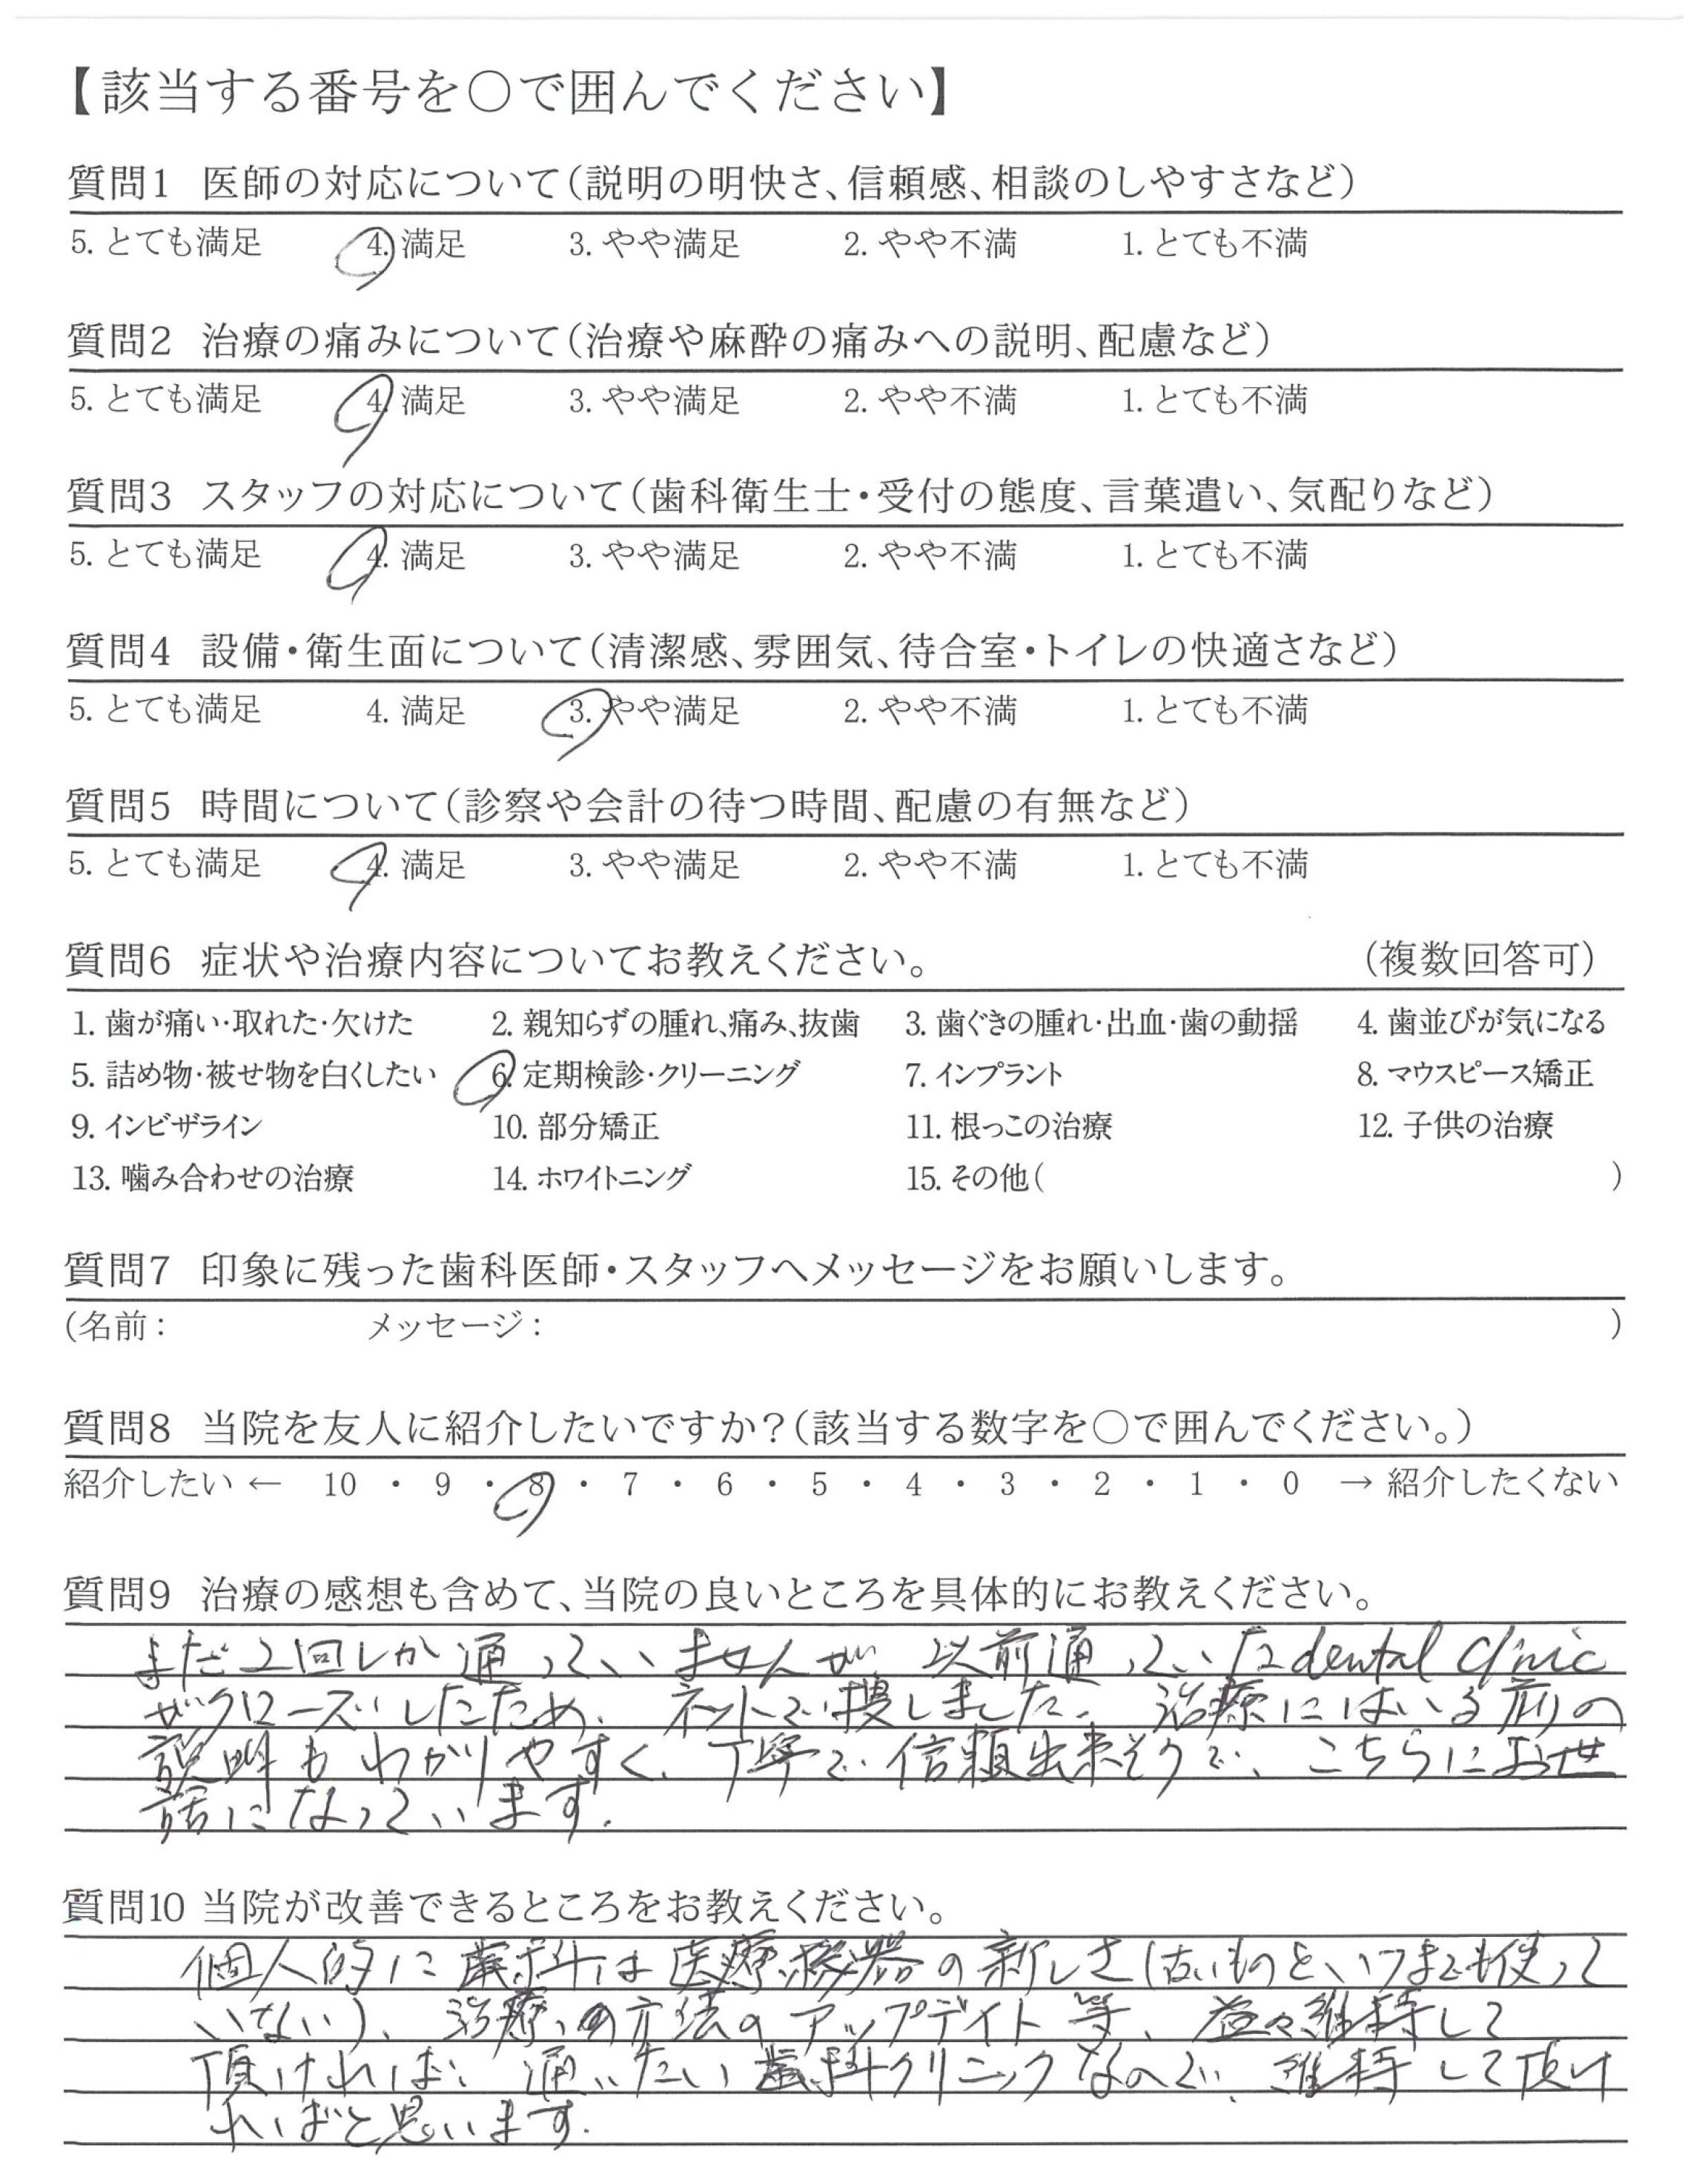 【該当する番号を○で囲んでください】
質問1 医師の対応について(説明の明快さ、信頼感、相談のしやすさなど)
5. とても満足 4. 満足 3. やや満足 2. やや不満 1. とても不満
質問2 治療の痛みについて(治療や麻酔の痛みへの説明、配慮など)
5. とても満足 4. 満足 3. やや満足 2. やや不満 1. とても不満
質問3 スタッフの対応について(歯科衛生士・受付の態度、言葉遣い、気配りなど)
5. とても満足 4. 満足 3. やや満足 2. やや不満 1. とても不満
質問4 設備・衛生面について(清潔感、雰囲気、待合室・トイレの快適さなど)
5. とても満足 4. 満足 3. やや満足 2. やや不満 1. とても不満
質問5 時間について(診察や会計の待つ時間、配慮の有無など)
5. とても満足 4. 満足 3. やや満足 2. やや不満 1. とても不満
質問6 症状や治療内容についてお教えください。 (複数回答可)
1. 歯が痛い・取れた・欠けた 2. 親知らずの腫れ、痛み、抜歯 3. 歯ぐきの腫れ・出血・歯の動揺 4. 歯並びが気になる
5. 詰め物・被せ物を白くしたい 6. 定期検診・クリーニング 7. インプラント 8. マウスピース矯正
9. インビザライン 10. 部分矯正 11. 根っこの治療 12. 子供の治療
13. 噛み合わせの治療 14. ホワイトニング 15. その他( )
質問7 印象に残った歯科医師・スタッフへメッセージをお願いします。
(名前: メッセージ: )
質問8 当院を友人に紹介したいですか?(該当する数字を○で囲んでください。)
紹介したい ← 10 ・ 9 ・ 8 ・ 7 ・ 6 ・ 5 ・ 4 ・ 3 ・ 2 ・ 1 ・ 0 → 紹介したくない
質問9 治療の感想も含めて、当院の良いところを具体的にお教えください。
まだ2回しか通っていませんが、以前通っていたdental clinic
がクローズしたため、ネットで捜しました。治療にはいる前の
説明もわかりやすく、丁寧で信頼出来そうで、こちらにお世
話になっています。
質問10 当院が改善できるところをお教えください。
個人的に歯科は医療機器の新しさ(古いものを、いつまでも使って
いない)、治療の方法のアップデイト等、益々維持して
頂ければ、通いたい歯科クリニックなので、維持して頂け
ればと思います。